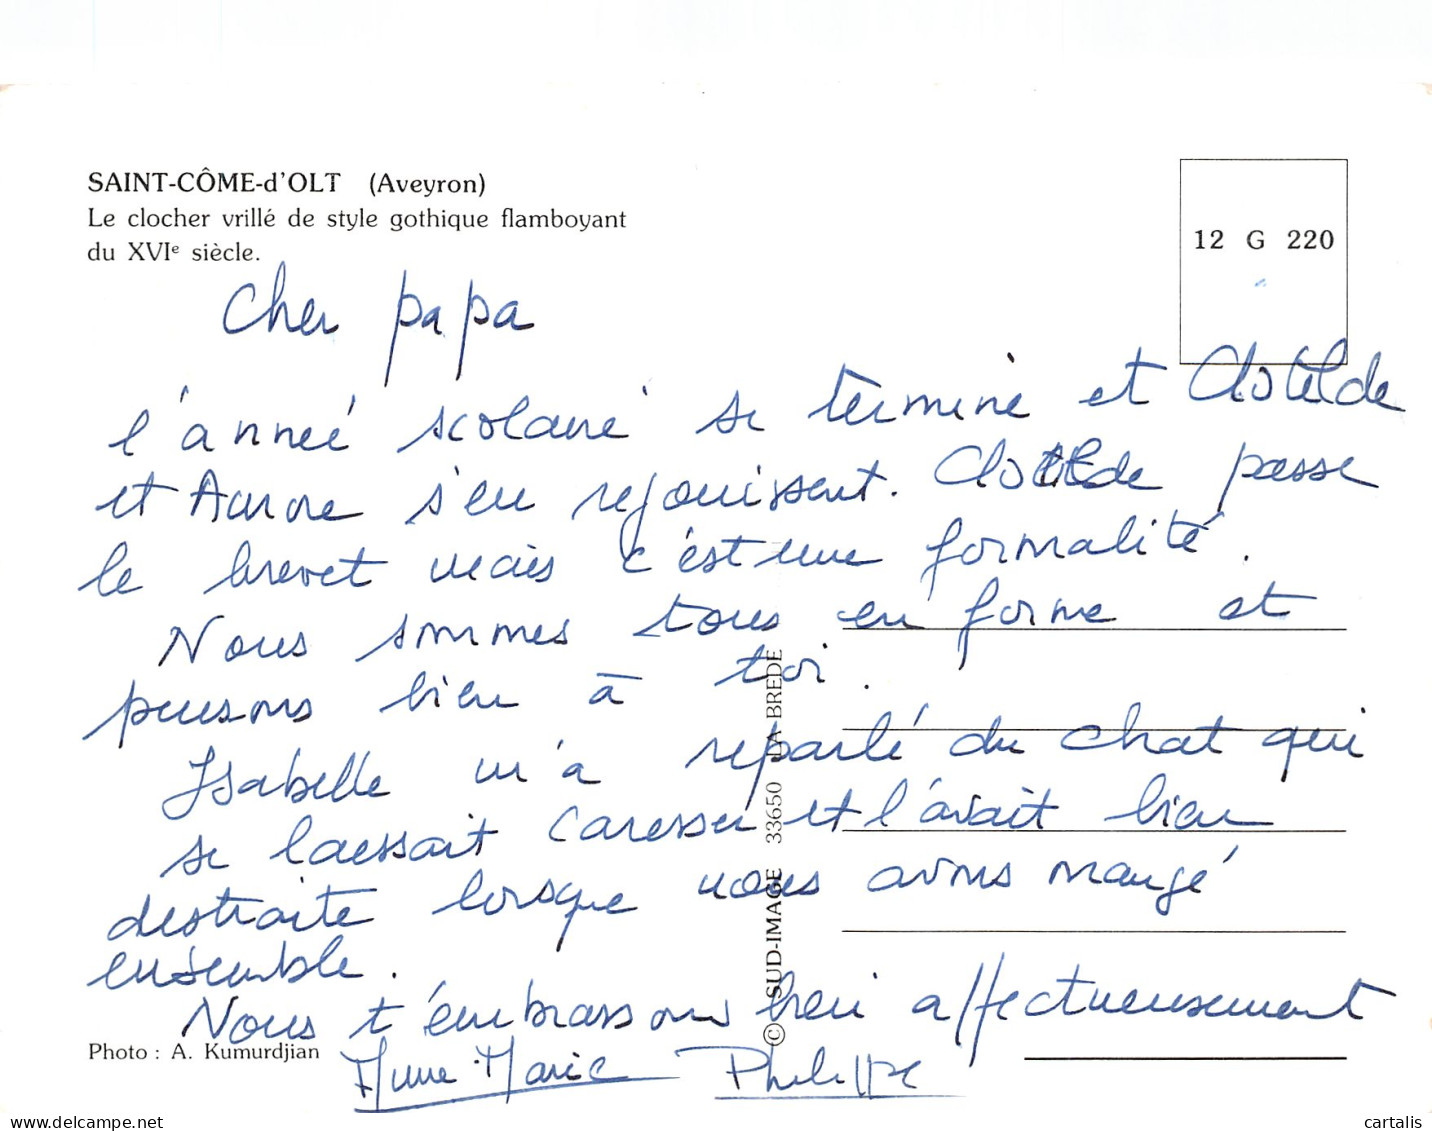 SAINT-CÔME-d'OLT (Aveyron)
Le clocher vrillé de style gothique flamboyant
du XVIe siècle.
12 G 220
Cher papa
l'année scolaire se termine et Clotilde
et Aurore s'en rejouissent. Clotilde passe
le brevet mais c'est une formalité.
Nous sommes tous en forme et
pensons bien à toi.
Isabelle m'a reparlé du chat qui
se laissait caresser et l'avait bien
distraite lorsque nous avons mangé
ensemble.
Nous t'embrassons bien affectueusement
Anne-Marie Philippe
Photo : A. Kumurdjian
© SUD-IMAGE 33650 LA BREDE
cartalis